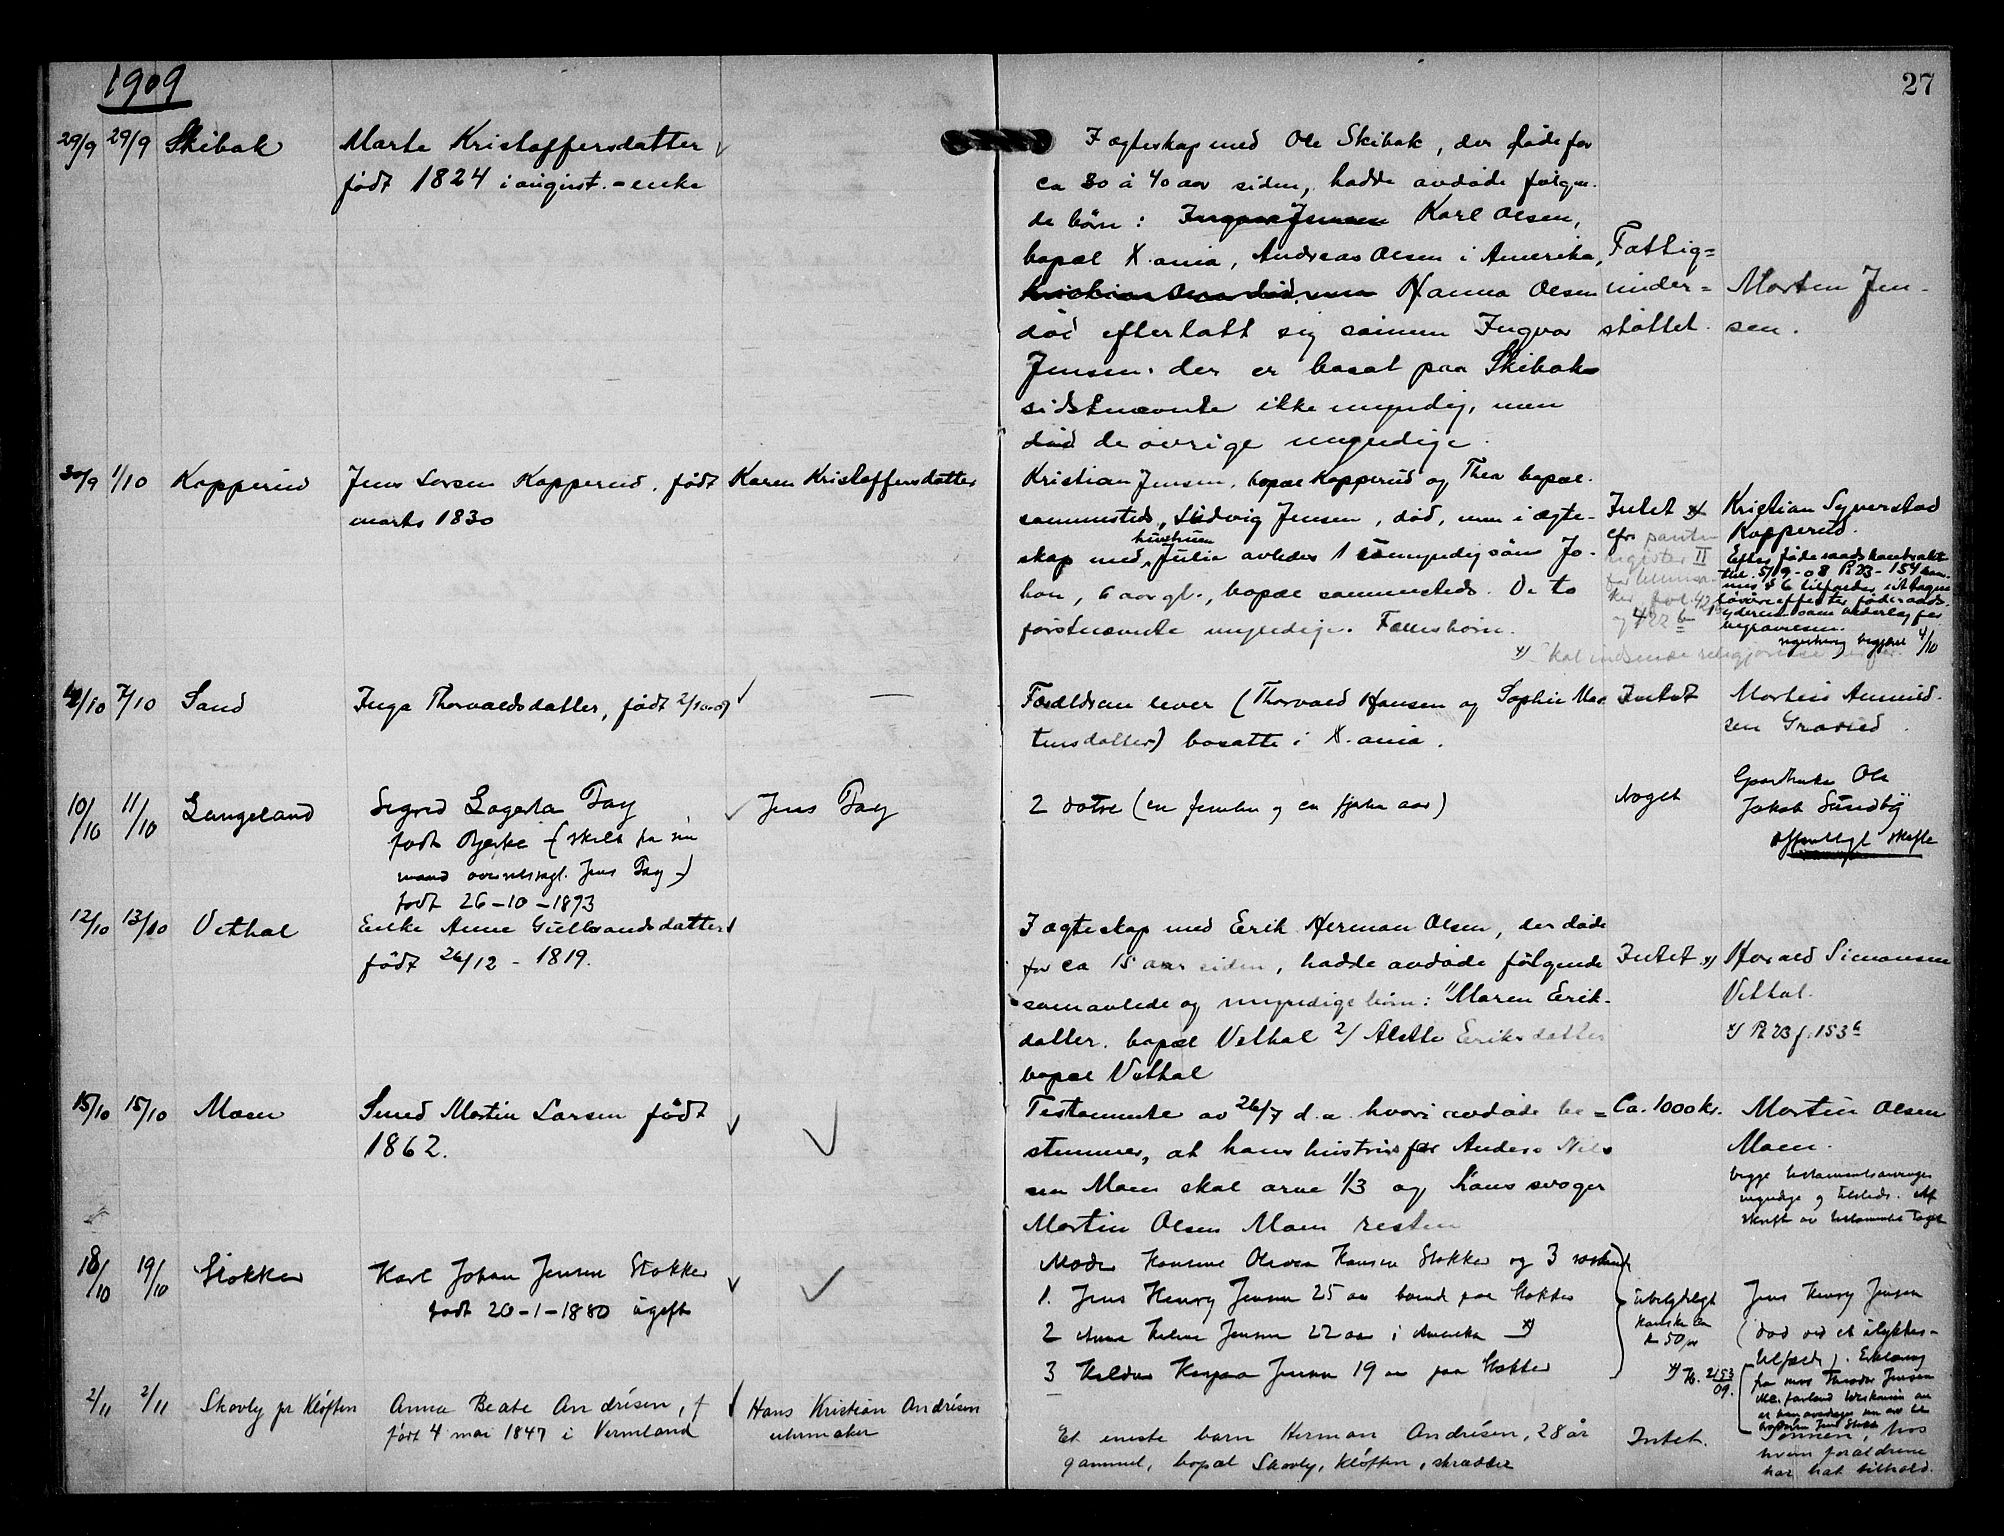 1909
27
29/9 29/9 Skibak
Marte Kristoffersdatter
født 1824 i august. - enke
I ægteskap med Ole Skibak, der døde for
ca 30 à 40 aar siden, hadde avdøde følgen-
de børn: Ingvar Jensen Karl Olsen,
bopæl X.ania, Andreas Olsen i Amerika,
Hanna Olsen
død efterlatt sig sønnen Ingvar
Jensen. der er bosat paa Skibak
sidstnævnte ikke myndig, men
død de øvrige myndige.
Fattig=
under=
støttet.
Morten Jen-
sen.
30/9 1/10 Kopperud
Jens Larsen Kopperud. født
marts 1830
Karen Kristoffersdatter
Kristian Jensen, bopæl Kopperud og Thea bopæl
sammesteds, Ludvig Jensen, død, men i ægte-
skap med hustruen Julie avledes 1 umyndig søn Jo-
han, 6 aar gl., bopæl sammesteds. De to
førstnævnte myndige. Fællesbørn.
Intet x)
cfr panter
register II
fol. 42
og 422 b
Kristian Syverstad
Kopperud.
Efter føderaadskontrakt
thl. 5/9-08 P. 23-154
begravelsen.
begjæret 4/10
x) Skal indsende redegjørelse
4/10 7/10 Sand
Inga Thorvaldsdatter, født 2/10 09
—
Forældrene lever (Thorvald Hansen og Sophie Mar
tinsdatter) bosatte i X.ania.
Intet
Martin Amund-
sen Graved
10/10 11/10 Langeland
Sigrid Lagerta Fay
født Bjerke - (skilt fra sin
mand overretssagf. Jens Fay -)
født 26-10-1873
Jens Fay
2 døtre (en femten og en fjorten aar)
Noget
Gaardbruker Ole
Jakob Sundby
offentligt skifte
12/10 13/10 Vethal
Enke Anne Gulbrandsdatter
født 26/12 - 1819.
I ægteskap med Erik Herman Olsen, der døde
for ca 15 aar siden, hadde avdøde følgende
samavlede og myndige børn: 1/ Maren Erik-
datter. bopæl Vethal 2/ Alette Eriksdatter
bopæl Vethal
Intet x)
Harald Simonsen
Vethal.
x) P. 23 f. 153 b
15/10 15/10 Moen
Smed Martin Larsen født
1862.
Testamente av 26/7 d.a. hvori avdøde be=
stemmer, at hans hustrus far Anders Niel
sen Moen skal arve 1/3 og hans svoger
Martin Olsen Moen resten
Ca. 1000 kr.
Martin Olsen
Moen.
begge testamentsarvinger
myndige og tilstede. Af
skrift av testamentet taget
18/10 19/10 Stokker
Karl Johan Jensen Stokker
født 20-1-1880 ugift
Moder Hansine Olivia Hansen Stokker og 3 søskend
1. Jens Henry Jensen 25 aar boende paa Stokker
2 Anna Helene Jensen 22 aar i Amerika x)
3 Jensen 19 aar paa Stokker
Ubetydeligt
kanske en
kr 50,00
x) Jb. 2153
09.
Jens Henry Jensen
(død ved et ulykkes-
tilfælde). Erklæring
fra mor Theodor Jensen
2/11 2/11 Skovly pr Kløften
Anna Beate Andrésen, f
født 4 mai 1847 i Vermland
Hans Kristian Andrésen
urmaker
Et eneste barn Herman Andrésen, 28 år
gammel, bopæl Skovly, Kløften, skrædder
Intet.
Sønnen, hos
hvem forældrene
har hat tilhold.